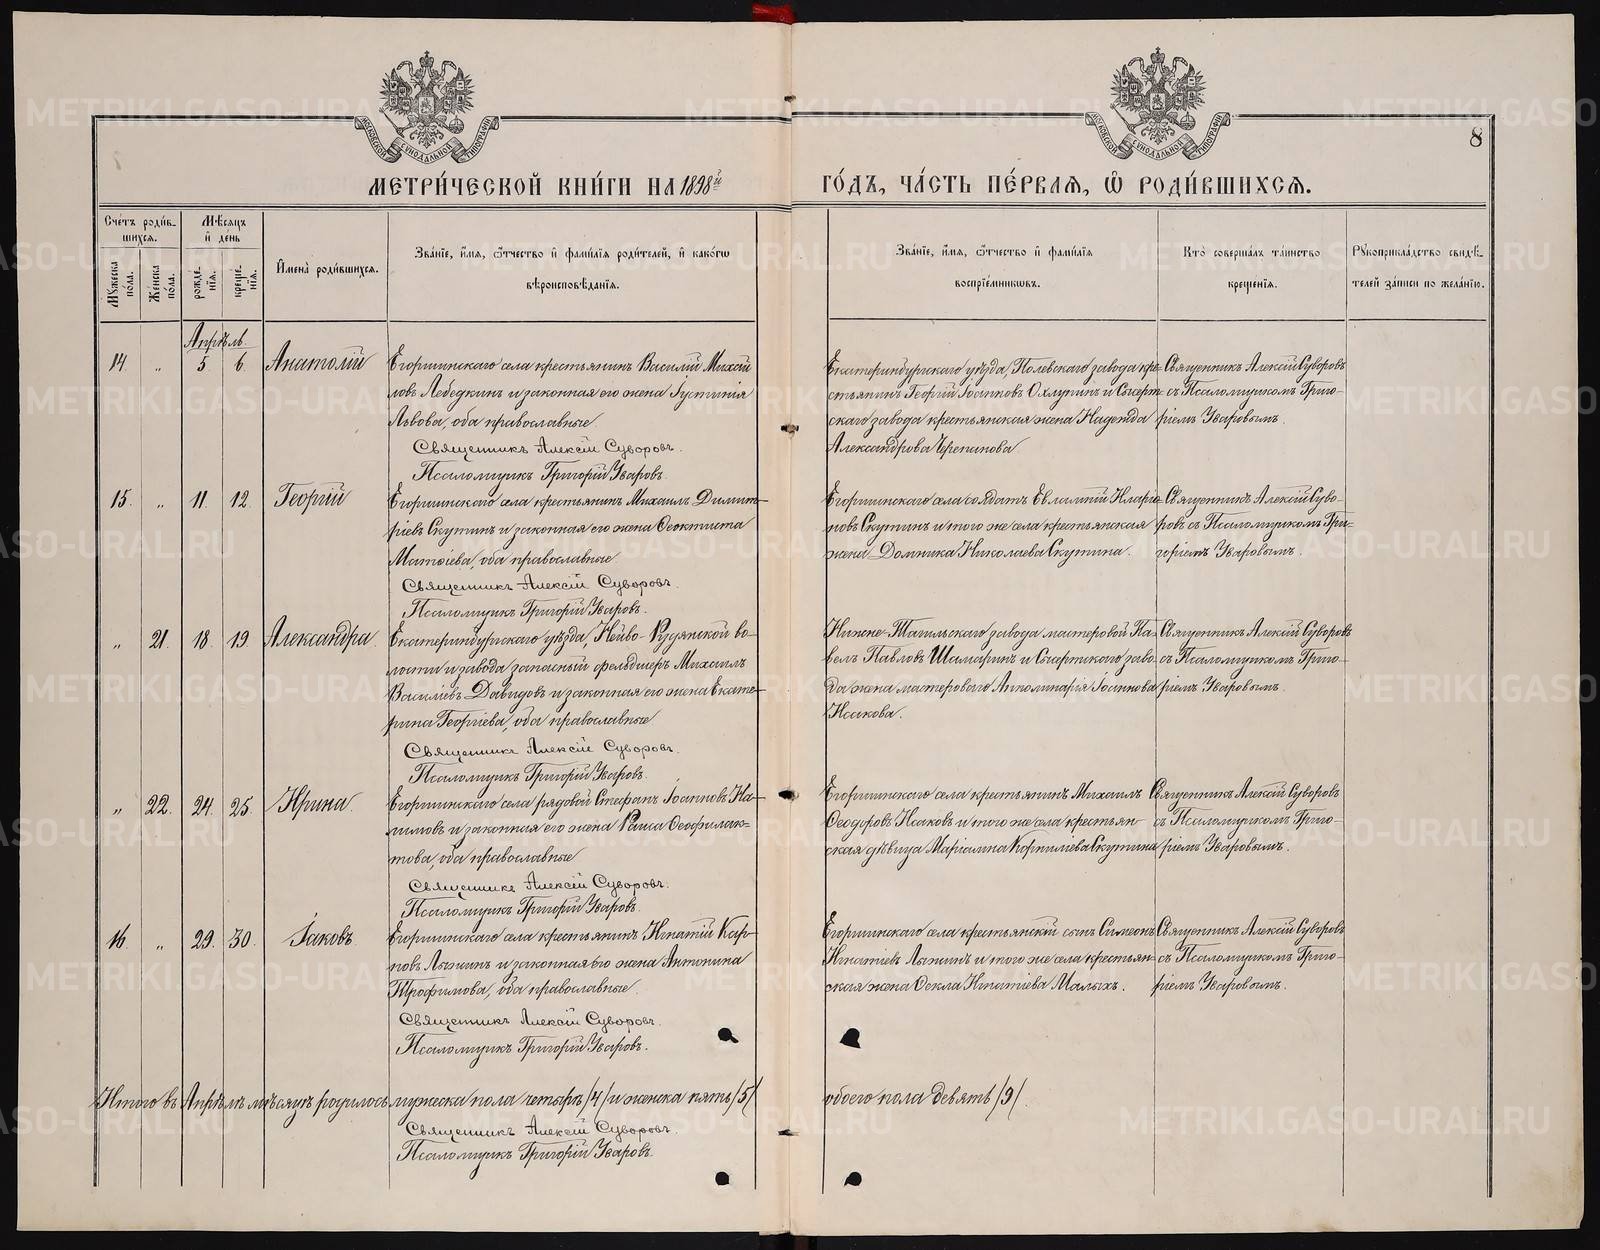 8
МЕТРИ́ЧЕСКОЙ КНИ́ГИ НА 1898й
ГО́ДЪ, ЧА́СТЬ ПЕ́РВАЯ, Ѡ҆ РОДИ́ВШИХСЯ.
Сче́тъ роди́в-
шихся.
Мѣ́сяцъ
и҆ де́нь
Мꙋ́жеска
по́ла.
Же́нска
по́ла.
рожде́-
нїя.
креще́-
нїя.
И҆мена̀ роди́вшихся.
Зва́нїе, и҆́мя, ѻ҆́тчество и҆ фами́лїя роди́телей, и҆ како́гѡ
вѣроисповѣ́данїя.
Зва́нїе, и҆́мя, ѻ҆́тчество и҆ фами́лїя
воспрїе́мникѡвъ.
Кто̀ соверша́лъ та́инство
креще́нїя.
Рꙋкоприкла́дство свидѣ́-
телей за́писи по жела́нїю.
Апрѣль.
14. „ 5 6. Анатолій
Егоршинскаго села крестьянинъ Василій Михай
ловъ Лебедкинъ и законная его жена Іустинія
Львова, оба православные
Священникъ Алексій Суворовъ.
Псаломщикъ Григорій Уваровъ.
Екатеринбургскаго уѣзда, Полевскаго завода кре-
стьянинъ Георгій Іоанновъ Охлупинъ и Сысерт-
скаго завода крестьянская жена Надежда
Александрова Черепанова
Священникъ Алексій Суворовъ
съ Псаломщикомъ Григо-
ріемъ Уваровымъ.
15. „ 11. 12. Георгій
Егоршинскаго села крестьянинъ Михаилъ Димит-
ріевъ Скутинъ и законная его жена Ѳеоктиста
Матѳіева, оба православные
Священникъ Алексій Суворовъ.
Псаломщикъ Григорій Уваровъ.
Егоршинскаго села солдатъ Евлампій Иларіо-
новъ Скутинъ и того же села крестьянская
жена Домника Николаева Скутина.
Священникъ Алексій Суво-
ровъ съ Псаломщикомъ Гри-
горіемъ Уваровымъ.
„ 21. 18. 19. Александра
Екатеринбургскаго уѣзда, Нейво-Рудянской во-
лости и завода запасный фельдшеръ Михаилъ
Василіевъ Давидовъ и законная его жена Екате-
рина Георгіева, оба православные
Священникъ Алексій Суворовъ.
Псаломщикъ Григорій Уваровъ.
Нижне-Тагильскаго завода мастеровой Па-
велъ Павловъ Шамаринъ и Сысертскаго заво-
да жена мастероваго Апполинарія Іоаннова
Исакова.
Священникъ Алексій Суворовъ
съ Псаломщикомъ Григо-
ріемъ Уваровымъ.
„ 22. 24. 25. Ирина.
Егоршинскаго села рядовой Стефанъ Іоанновъ На-
лимовъ и законная его жена Раиса Ѳеофилак-
това, оба православные
Священникъ Алексій Суворовъ.
Псаломщикъ Григорій Уваровъ.
Егоршинскаго села крестьянинъ Михаилъ
Ѳеодоровъ Исаковъ и того же села крестьян-
ская дѣвица Маріамна Корнилиева Скутина
Священникъ Алексій Суворовъ
съ Псаломщикомъ Григо-
ріемъ Уваровымъ.
16. „ 29. 30. Іаковъ
Егоршинскаго села крестьянинъ Игнатій Кар-
повъ Лыжинъ и законная его жена Антонина
Трофимова, оба православные.
Священникъ Алексій Суворовъ.
Псаломщикъ Григорій Уваровъ.
Егоршинскаго села крестьянскій сынъ Симеонъ
Игнатіевъ Лыжинъ и того же села крестьян-
ская жена Ѳекла Игнатіева Малыхъ.
Священникъ Алексій Суворовъ
съ Псаломщикомъ Григо-
ріемъ Уваровымъ.
Итого въ Апрѣлѣ мѣсяцѣ родилось мужеска пола четыре /4/ и женска пять /5/
обоего пола девять /9/.
Священникъ Алексій Суворовъ.
Псаломщикъ Григорій Уваровъ.